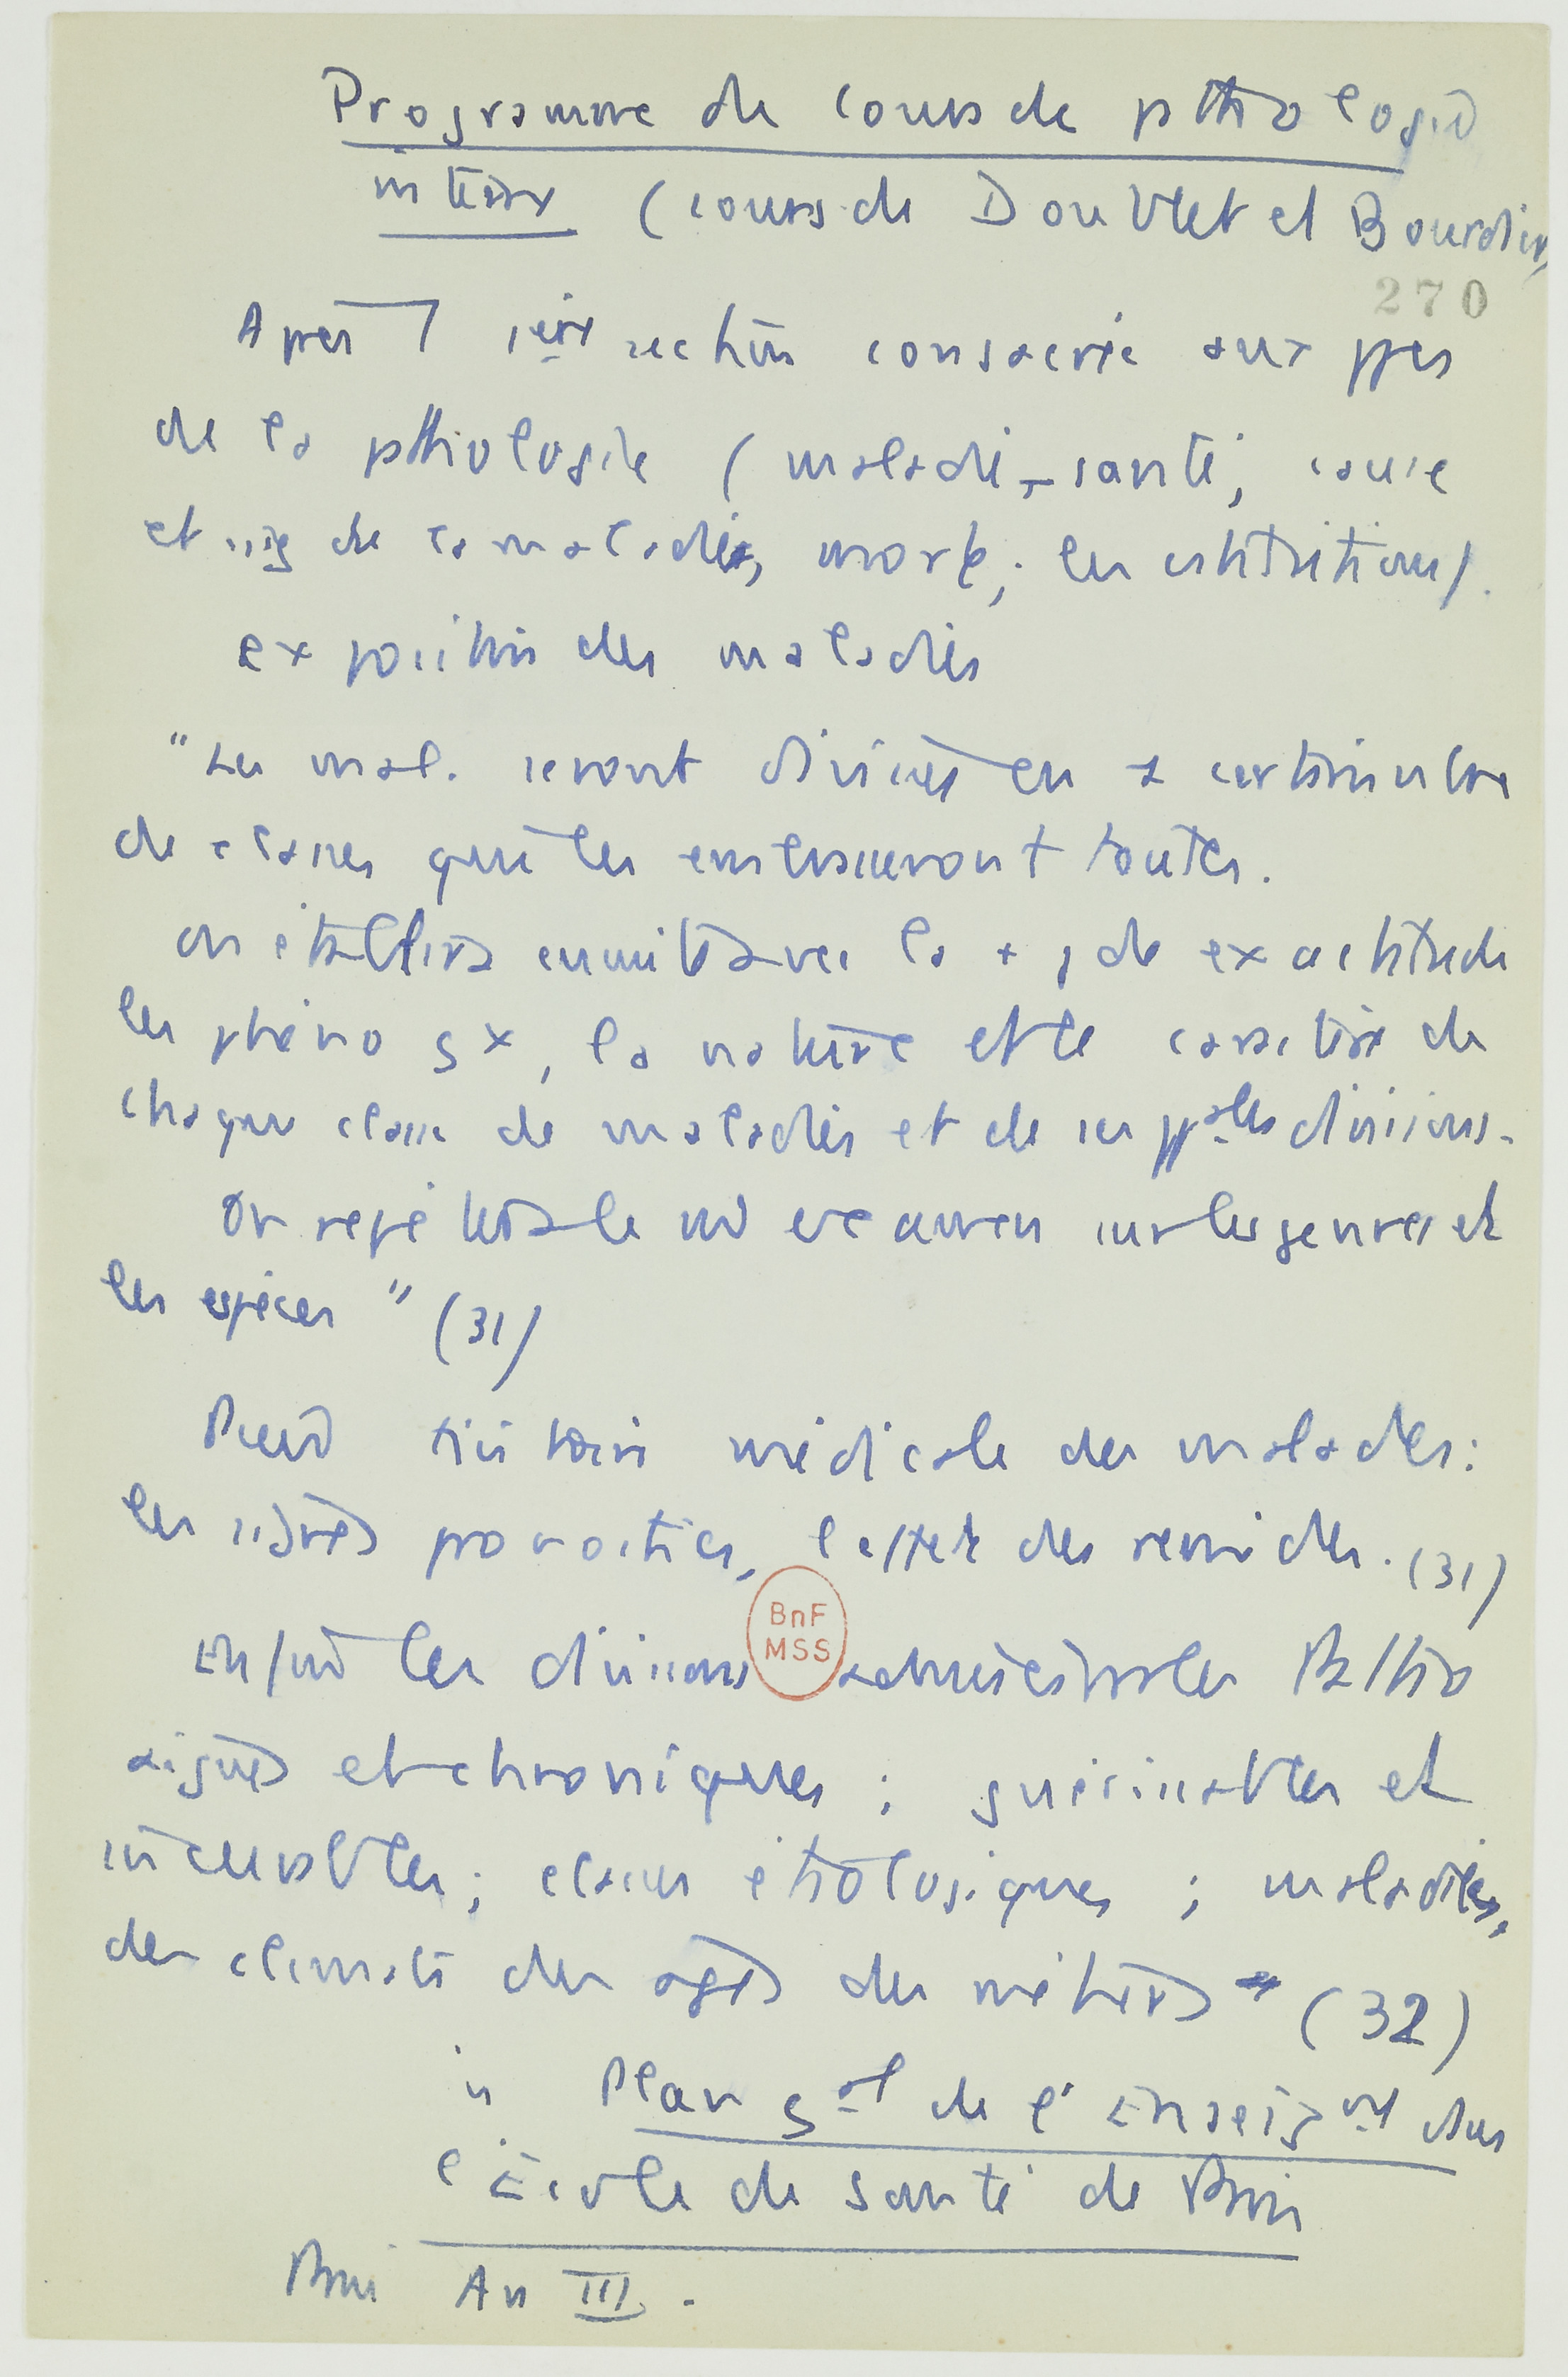 Programme de cours de pthologie
interne (cours de Doublet et Bourdier)
270
Après 1 1ère section consacrée aux ppes
de la pthologie (maladie-santé, cause
et sig de la maladie, mort; les
exposition des maladies
"Les mal. seront divisées en certain nbre
de classes qui les embrasseront toutes.
on établira ensuite avec la + gde exactitude
les phéno gx, la nature et le caractère de
chaque classe de maladies et de ses ppales divisions.
On répètera le mê examen sur les genres et
les espèces" (31)
Puis histoire médicale des malades:
les signes pronostics, l'effet des remèdes. (31)
Enfin les divisions
aigues et chroniques; guérissables et
incurables; classes étiologiques; maladies,
des climats des ages des métiers (32)
in Plan gal de l'Enseignt dans
l'École de Santé de Paris
Paris An III.
BnF
MSS